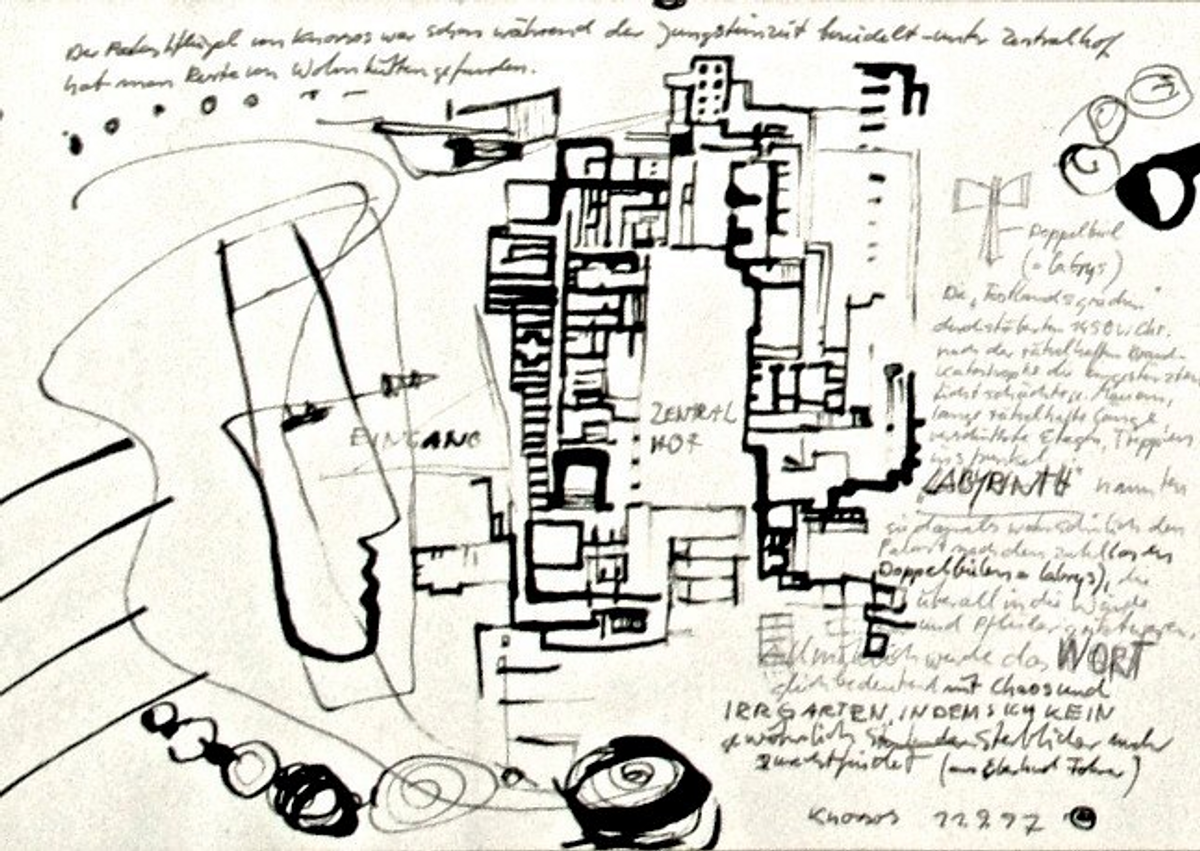 Der Palasthügel von Knossos war schon während der Jungsteinzeit besiedelt - unter Zentralhof
hat man Reste von Wohnhütten gefunden.
Doppelbeil
(= labrys)
Die „Festlandsgriechen"
1450 v. Chr.
nach der rätselhaften Brand-
katastrophe die
Lichtschächte, Mauern,
lange rätselhafte Gänge
verschüttete Etagen, Treppen
ins Dunkel
EINGANG
ZENTRAL
HOF
„LABYRINTH" nannten
sie damals wahrscheinlich den
Palast nach den zahllosen
Doppelbeilen = labrys), die
überall in die Wände
und Pfeiler
Allmählich wurde das WORT
gleichbedeutend mit Chaos und
IRRGARTEN, IN DEM SICH KEIN
gewöhnlich Sterblicher mehr
zurechtfindet (aus Eberhard
Knossos 11.9.97